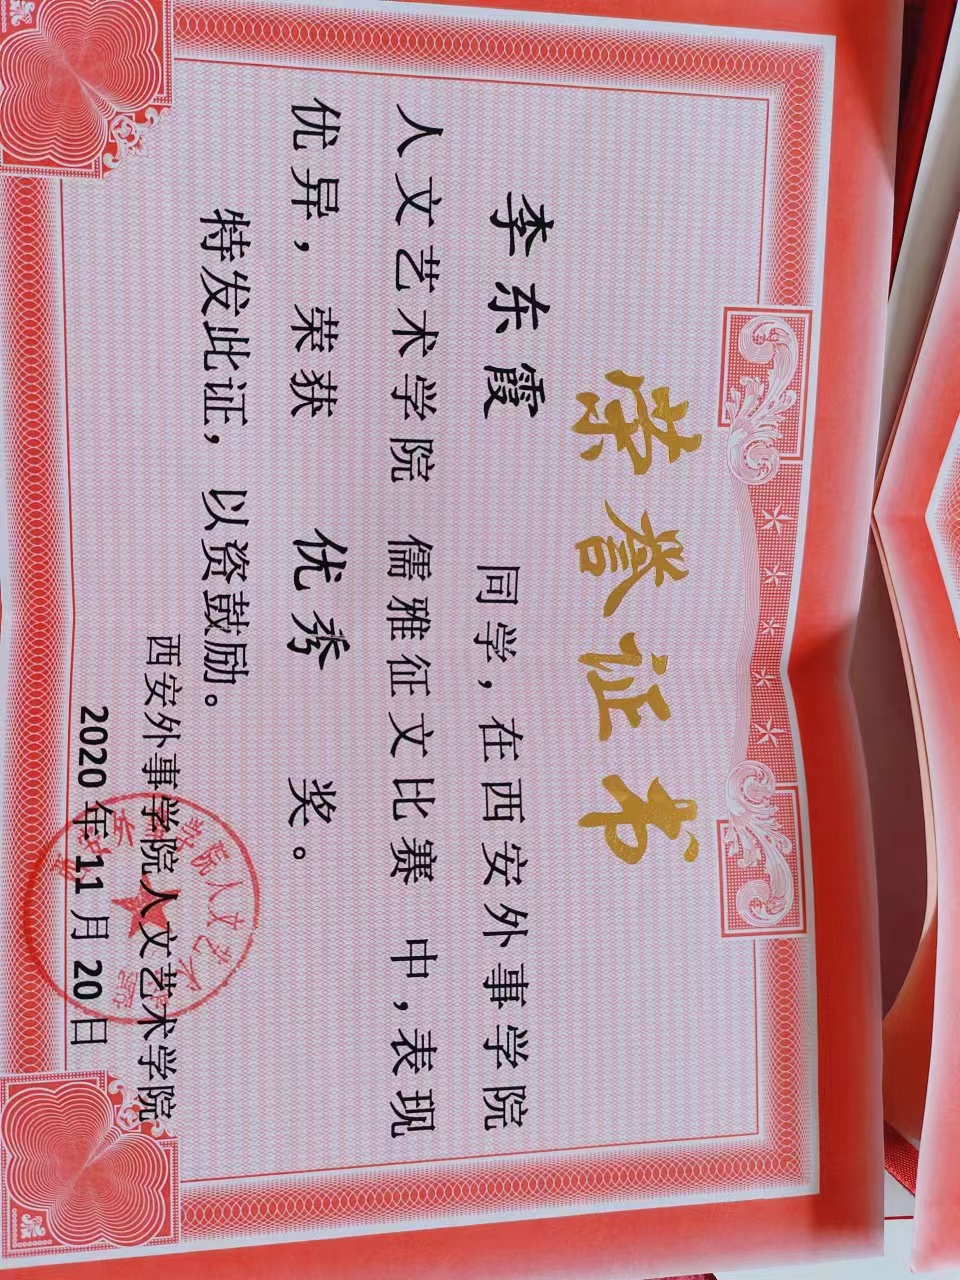 荣誉证书
李东霞 同学，在西安外事学院
人文艺术学院 儒雅征文比赛 中，表现
优异，荣获 优秀 奖。
特发此证，以资鼓励。
西安外事学院人文艺术学院
2020年11月20日